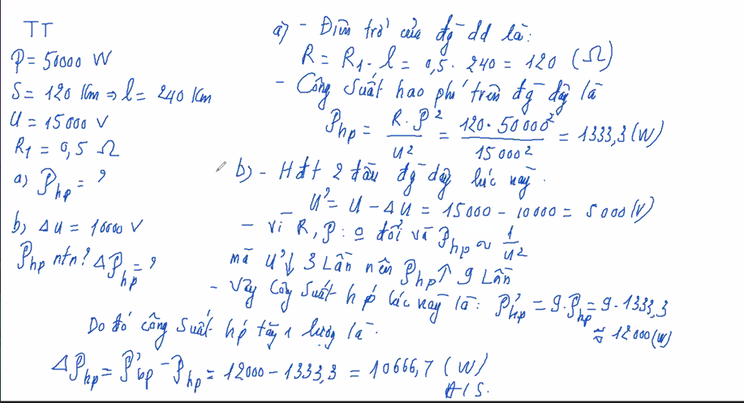 TT
P = 50000 W
S = 120 Km ⇒ l = 240 Km
U = 15000 V
R1 = 0,5 Ω
a) Php = ?
b) Δu = 10000 V
Php ntn? ΔPhp = ?
a) - Điện trở của đg dd là:
R = R1 . l = 0,5 . 240 = 120 (Ω)
- Công suất hao phí trên đg dây là
Php = R . P² / U² = 120 . 50000² / 15000² = 1333,3 (W)
b) - Hđt 2 đầu đg dây lúc này.
U' = U - ΔU = 15000 - 10000 = 5000 (V)
- Vì R, P: o đổi và Php ~ 1/U²
mà U' ↓ 3 Lần nên Php ↑ 9 Lần
- Vậy Công suất hp lúc này là: P'hp = 9. Php = 9 . 1333,3
≈ 12000 (W)
Do đó công suất hp tăng 1 lượng là.
ΔPhp = P'hp - Php = 12000 - 1333,3 = 10666,7 (W)
Đ/S.